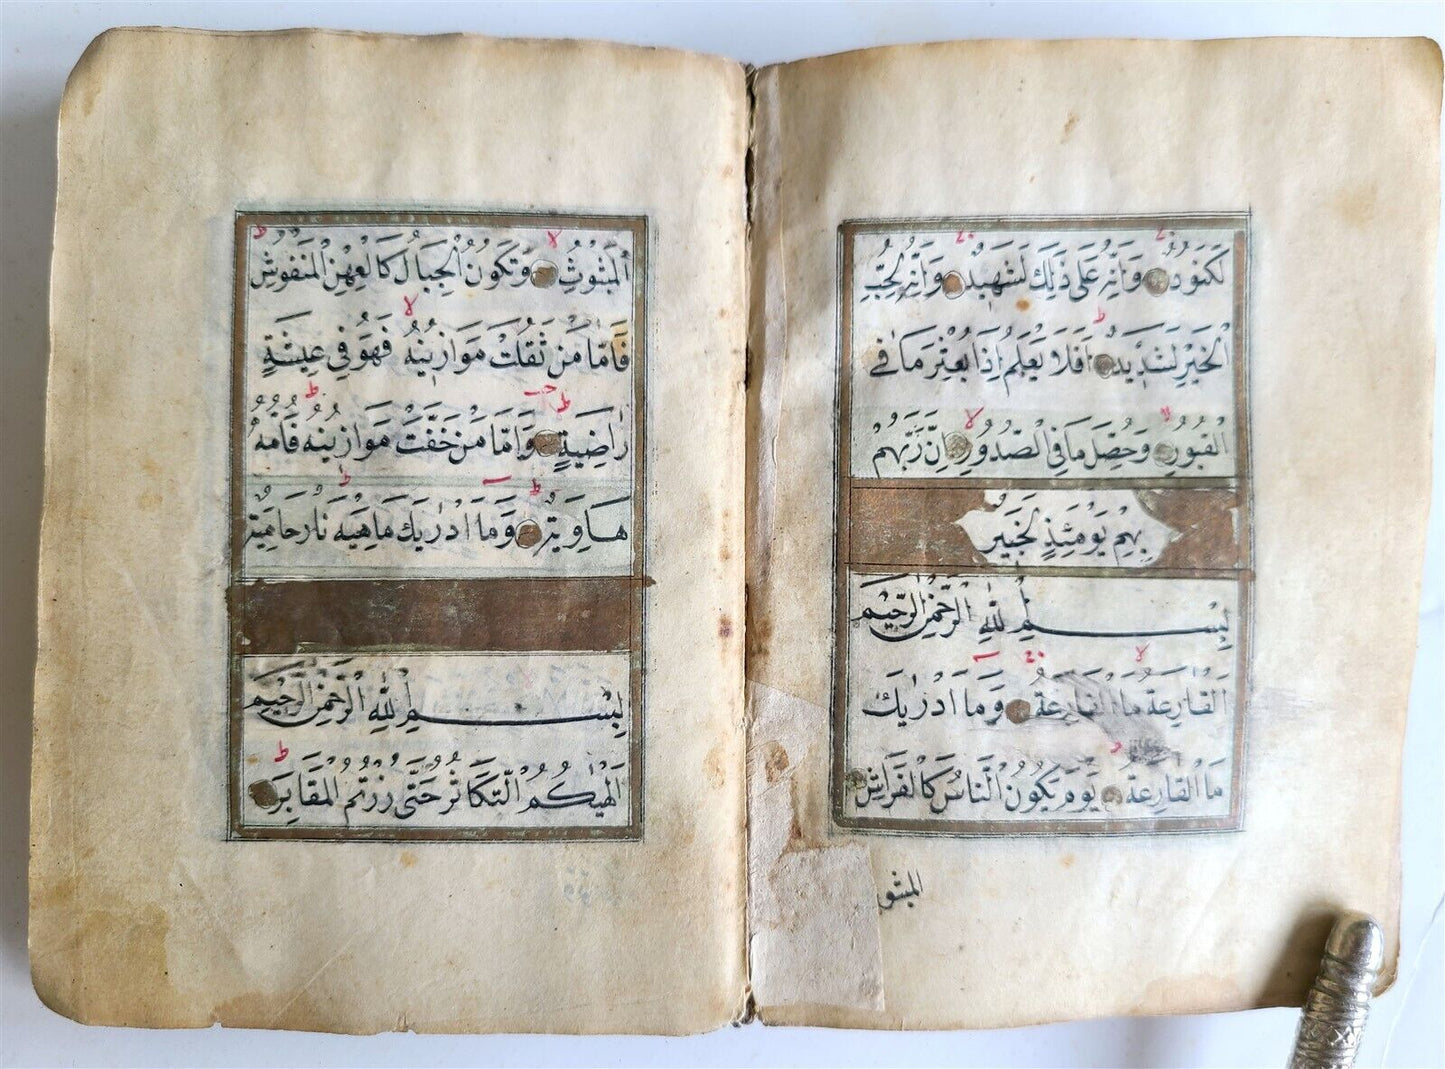 لَكَنُودٌ وَاِنَّهُ عَلٰى ذٰلِكَ لَشَهِيدٌ وَاِنَّهُ لِحُبِّ
الْخَيْرِ لَشَدِيدٌ اَفَلَا يَعْلَمُ اِذَا بُعْثِرَ مَا فِي
الْقُبُورِ وَحُصِّلَ مَا فِي الصُّدُورِ اِنَّ رَبَّهُمْ
بِهِمْ يَوْمَئِذٍ لَخَبِيرٌ
بِسْمِ اللّٰهِ الرَّحْمٰنِ الرَّحِيمِ
اَلْقَارِعَةُ مَا الْقَارِعَةُ وَمَا اَدْرٰيكَ
مَا الْقَارِعَةُ يَوْمَ يَكُونُ النَّاسُ كَالْفَرَاشِ
المبثو
الْمَبْثُوثِ وَتَكُونُ الْجِبَالُ كَالْعِهْنِ الْمَنْفُوشِ
فَاَمَّا مَنْ ثَقُلَتْ مَوَازِينُهُ فَهُوَ فِي عِيشَةٍ
رَاضِيَةٍ وَاَمَّا مَنْ خَفَّتْ مَوَازِينُهُ فَاُمُّهُ
هَاوِيَةٌ وَمَا اَدْرٰيكَ مَاهِيَهْ نَارٌ حَامِيَةٌ
بِسْمِ اللّٰهِ الرَّحْمٰنِ الرَّحِيمِ
اَلْهٰيكُمُ التَّكَاثُرُ حَتّٰى زُرْتُمُ الْمَقَابِرَ